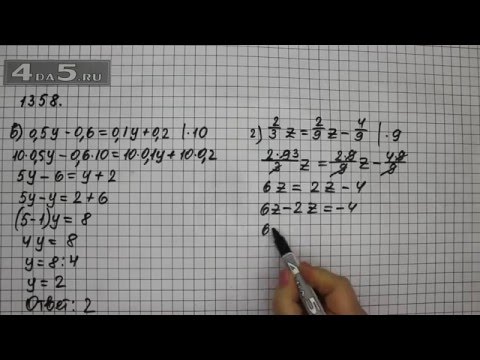 4DA5.RU
1358.
б) 0,5y - 0,6 = 0,1y + 0,2 | · 10
10·0,5y - 0,6·10 = 10·0,1y + 10·0,2
5y - 6 = y + 2
5y - y = 2 + 6
(5-1)y = 8
4y = 8
y = 8 : 4
y = 2
Ответ: 2
г) 2/3 z = 2/9 z - 4/9 | · 9
2·9 3/3 z = 2·9/9 z - 4·9/9
6z = 2z - 4
6z - 2z = -4
6